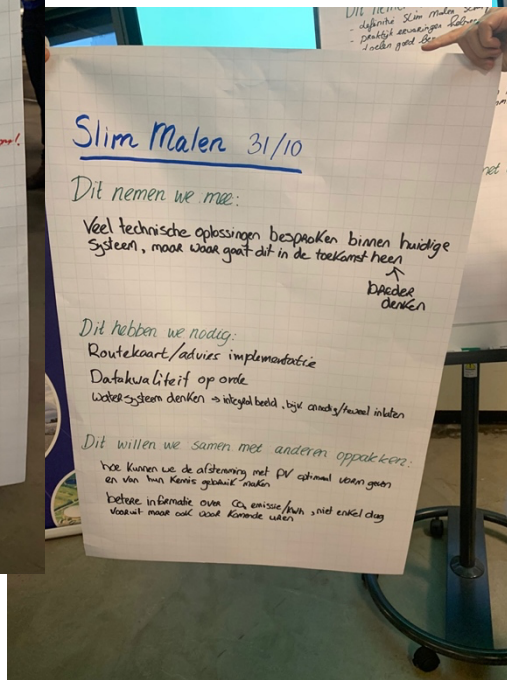 Dit neme
- definitie Slim malen
- praktijk ervaringen
doelen goed
Slim Malen 31/10
Dit nemen we mee:
Veel technische oplossingen besproken binnen huidige
systeem, maar waar gaat dit in de toekomst heen
breder
denken
Dit hebben we nodig:
Routekaart/advies implementatie
Datakwaliteit op orde
Watersysteem denken → integraal beeld, bijv. onnodig/teveel inlaten
Dit willen we samen met anderen oppakken:
hoe kunnen we de afstemming met PV optimaal vorm geven
en van hun kennis gebruik maken
betere informatie over CO2 emissie/kWh, niet enkel dag
vooruit maar ook voor komende uren